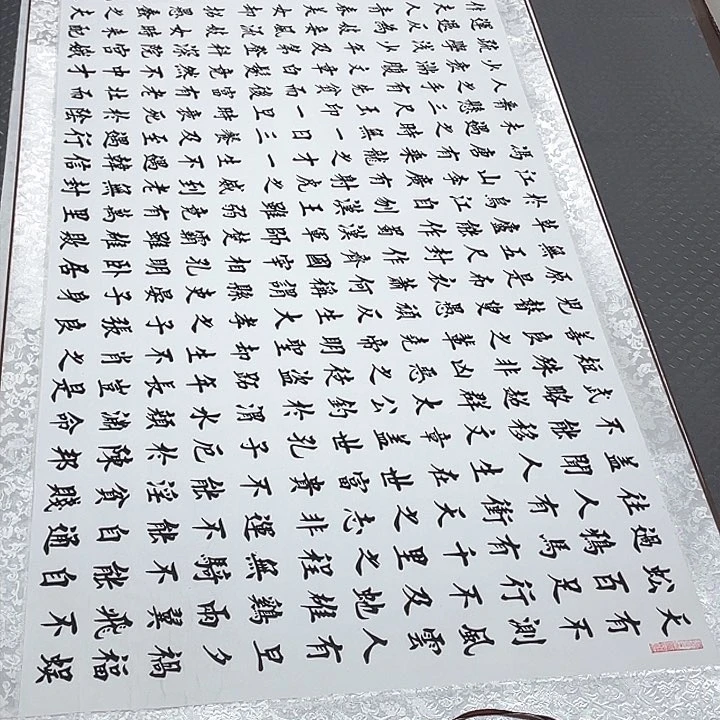 天有不測風雲人有旦夕禍福蜈
蚣百足行不及虵雄鷄兩翼飛不
過鴉馬有千里之程無騎不能自
往人有衝天之志非運不能自通
盖聞人生在世富貴不能淫貧賤
不能移文章盖世孔子厄於陳邦
武略超群太公釣於渭水顏淵命
短殊非凶惡之徒盜跖年長豈是
善良之輩堯帝明聖却生不肖之
兒瞽叟愚頑反生大孝子張良
原是布衣蕭何稱謂縣吏晏子身
無五尺封作齊國宰相孔明臥居
草廬能作蜀漢軍師楚霸雖雄敗
於烏江自刎漢王雖弱竟有萬里
江山李廣有射虎之威到老無封
馮唐有乘龍之才一生不遇韓信
未遇之時無一日三餐及至遇行
腰懸三尺玉印一旦時衰死於陰
人之手有先貧而後富有老壯而
少衰滿腹文章白髮竟然不中才
疏學淺少年及第登科深院宮娥
運過反為妓妾風流妓女時來配
作夫人青春美女却招愚蠢之夫